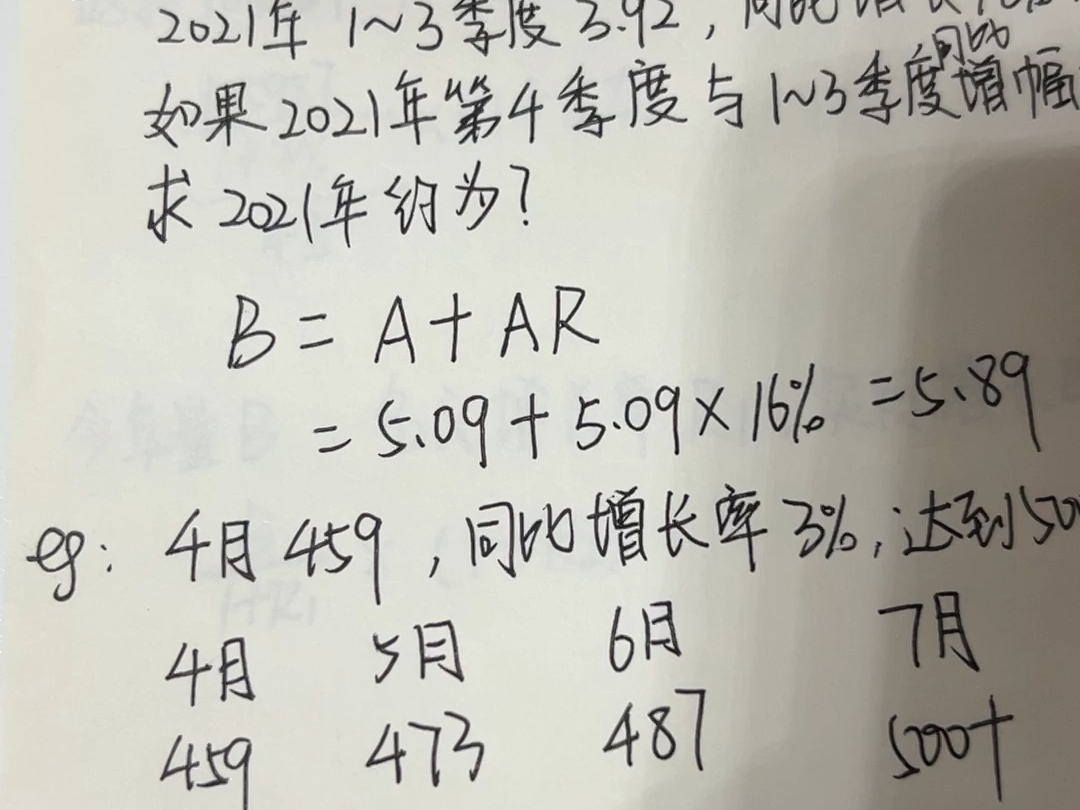 2021年 1~3季度 3.92, 同比增长16%
如果2021年第4季度与1~3季度同比增幅
求2021年约为?
B = A + AR
= 5.09 + 5.09 × 16% = 5.89
eg: 4月 459, 同比增长率 3%, 达到500
4月 5月 6月 7月
459 473 487 500+